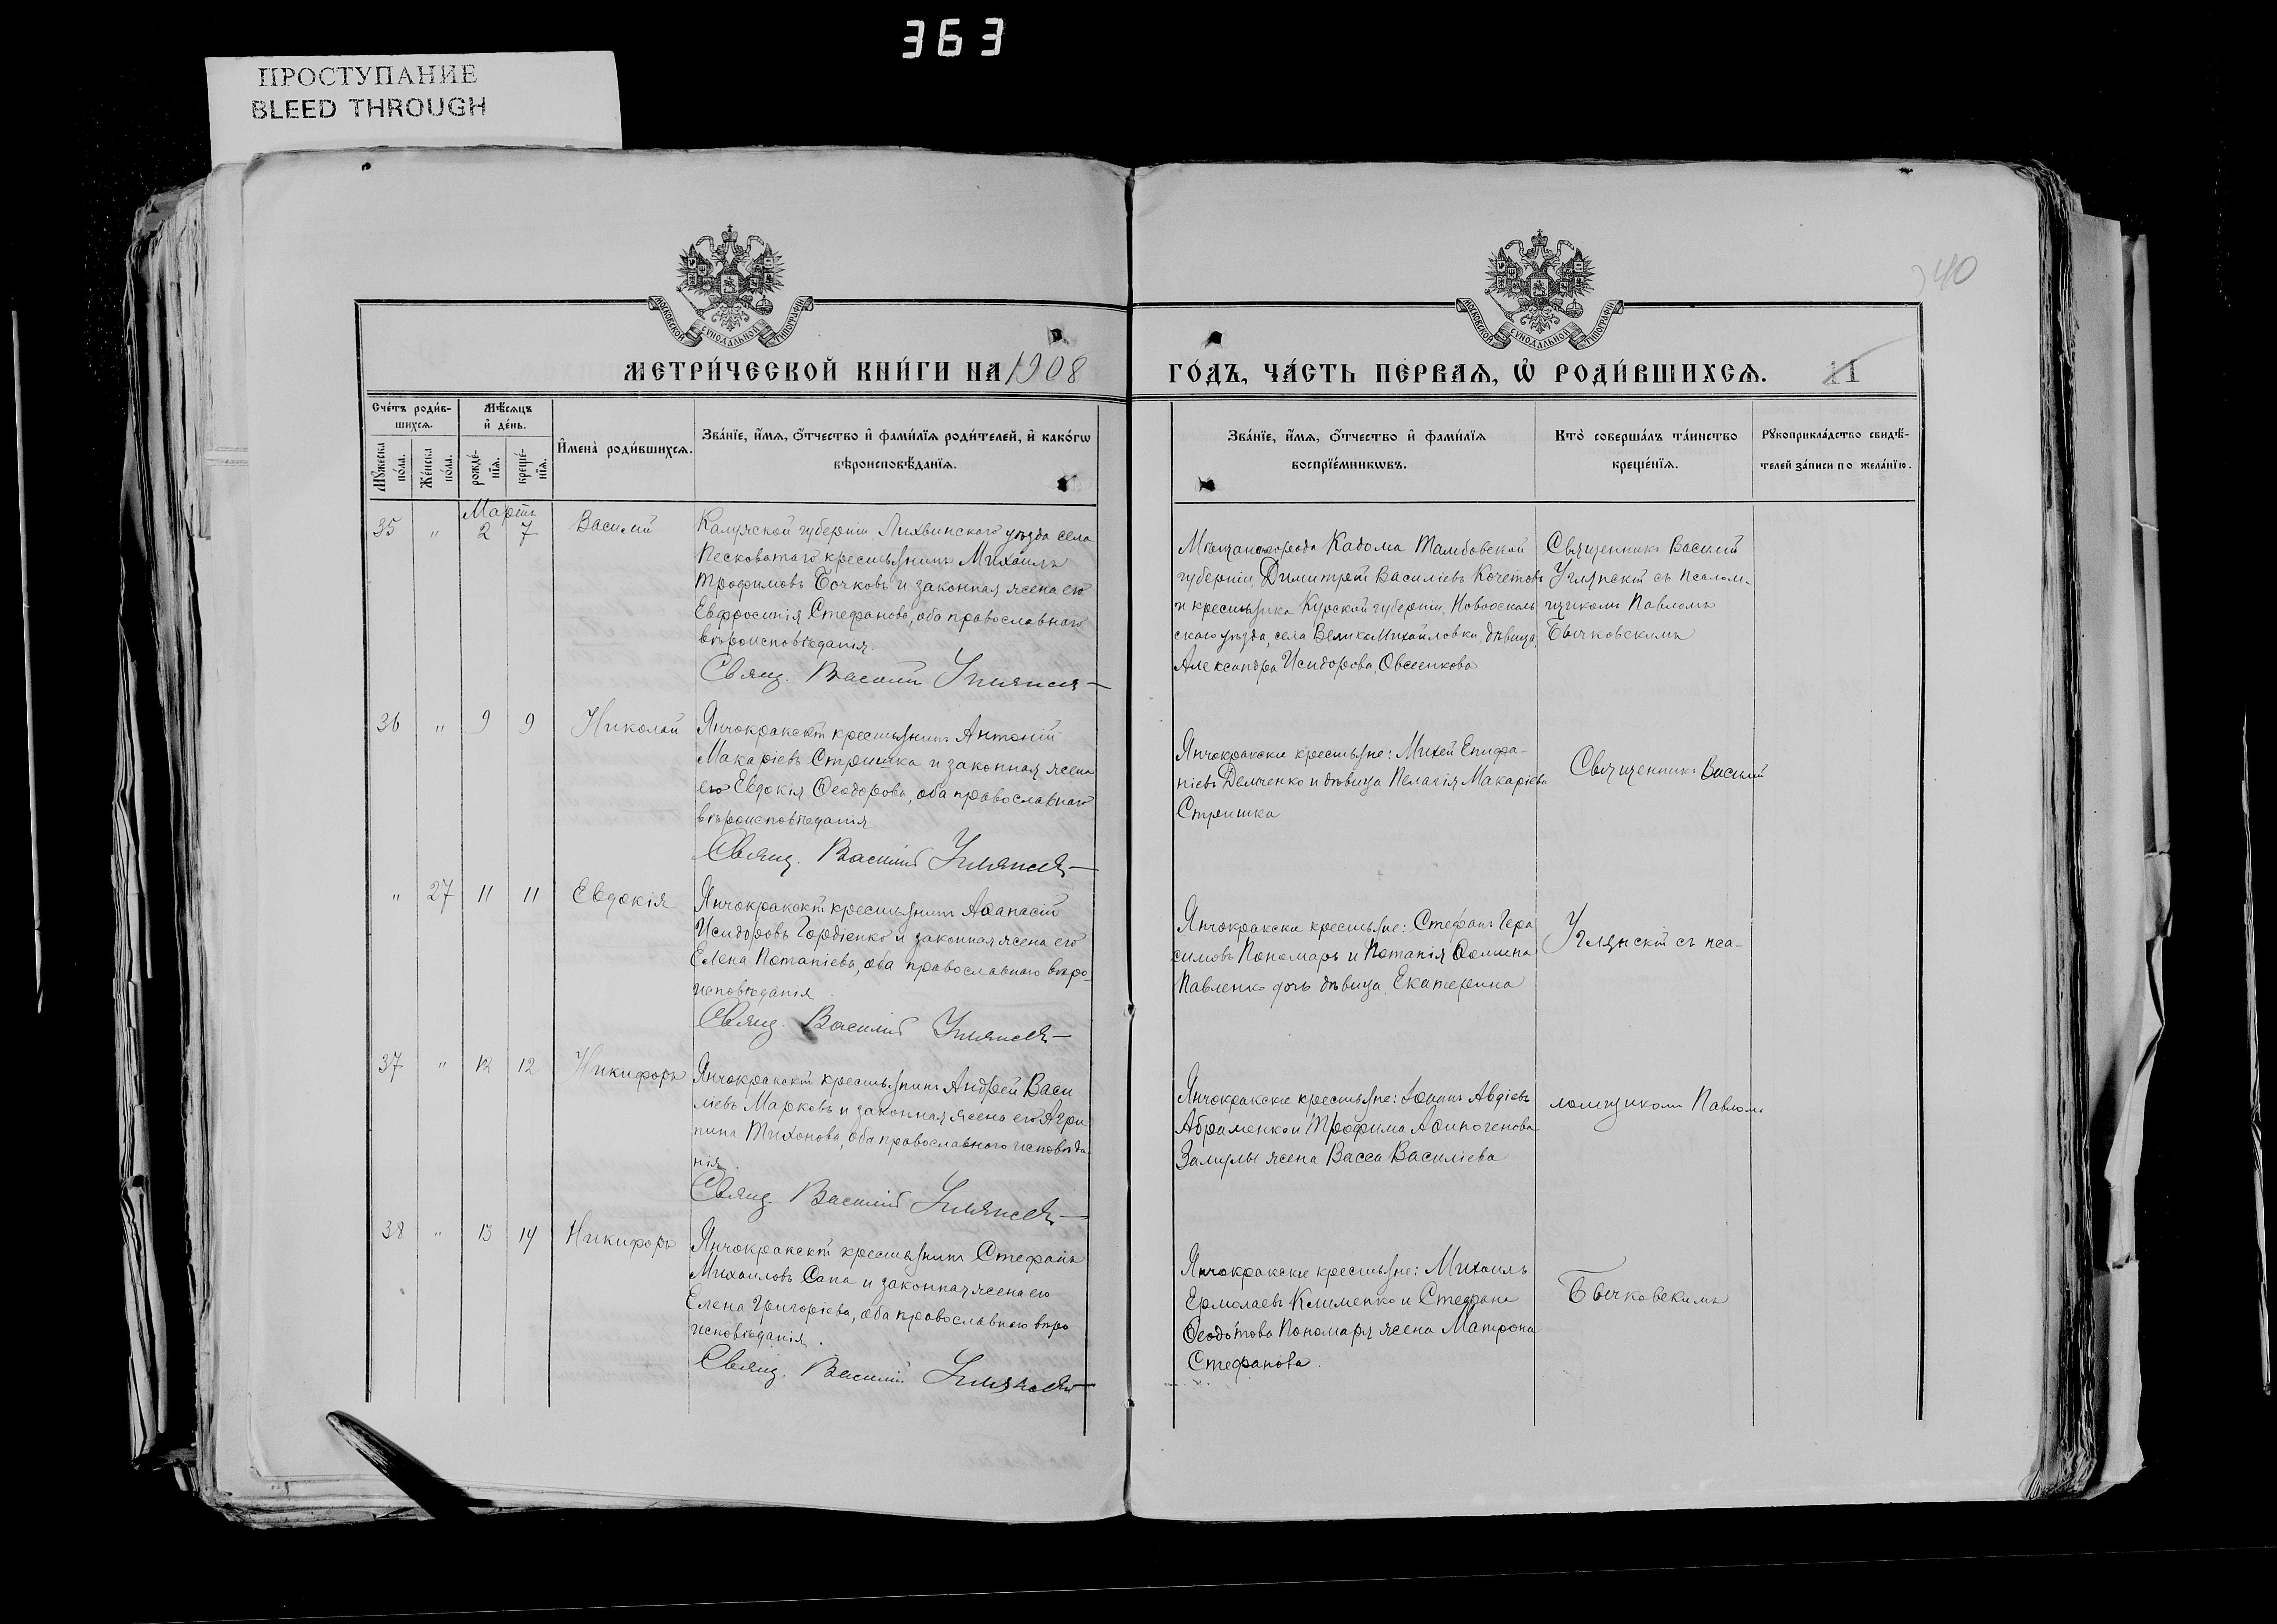 363
ПРОСТУПАНИЕ
BLEED THROUGH
340
МОСКОВСКОЙ СѴНОДАЛЬНОЙ ТИПОГРАФІИ
МОСКОВСКОЙ СѴНОДАЛЬНОЙ ТИПОГРАФІИ
МЕТРИ́ЧЕСКОЙ КНИ́ГИ НА 1908
ГО́ДЪ, ЧА́СТЬ ПЕ́РВАЯ, Ѡ҆ РОДИ́ВШИХСЯ. 11
Сче́тъ роди́в-
шихся.
Мѣ́сяцъ
и҆ де́нь.
Му́жеска
по́ла.
Же́нска
по́ла.
рожде́-
нія.
креще́-
нія.
И҆мена̀ роди́вшихся.
Зва́нїе, и҆́мя, ѻ҆́тчество и҆ фами́лїя роди́телей, и҆ како́гѡ
вѣроисповѣ́данїя.
Зва́нїе, и҆́мя, ѻ҆́тчество и҆ фами́лїя
воспрїе́мникѡвъ.
Кто̀ соверша́лъ та́инство
креще́нїя.
Рукоприкла́дство свидѣ́-
телей за́писи по жела́нїю.
Мартъ
35 " 2 7 Василій
Калужской губерніи Лихвинскаго уѣзда села
Песковатаго крестьянинъ Михаилъ
Трофимовъ Бочковъ и законная жена его
Евфросинія Стефанова, оба православнаго
вѣроисповѣданія.
Свящ. Василій
Мѣщане города Кадома Тамбовской
губерніи, Димитрій Василіевъ Кочетовъ
и крестьянка Курской губерніи, Новоосколь
скаго уѣзда, села Велико Михайловки, дѣвица,
Александра Исидорова, Овсенкова
Священникъ Василій
Углянскій съ псалом-
щикомъ Павломъ
Бычковскимъ
36 " 9 9 Николай
Янчокракскій крестьянинъ Антоній
Макаріевъ Стришка и законная жена
его Евдокія Ѳеодорова, оба православнаго
вѣроисповѣданія
Свящ. Василій
Янчокракскіе крестьяне: Михей Епифа-
ніевъ Демченко и дѣвица Пелагія Макаріева
Стришка
Священникъ Василій
" 27 11 11 Евдокія
Янчокракскій крестьянинъ Аѳанасій
Исидоровъ Гордіенко и законная жена его
Елена Потапіева, оба православнаго вѣро-
исповѣданія.
Свящ. Василій
Янчокракскіе крестьяне: Стефанъ Гера
симовъ Пономарь и Потапія Ѳомина
Павленко дочь дѣвица Екатерина
Углянскій съ пса-
37 " 12 12 Никифоръ
Янчокракскій крестьянинъ Андрей Васи
ліевъ Марковъ и законная жена его Агри
пина Тихонова, оба православнаго исповѣда
нія.
Свящ. Василій
Янчокракскіе крестьяне: Іоаннъ Авдіевъ
Абраменко и Трофима Аѳиногенова
жена Васса Василіева
ломщикомъ Павломъ
38 " 13 14 Никифоръ
Янчокракскій крестьянинъ Стефанъ
Михаиловъ Сапа и законная жена его
Елена Григоріева, оба православнаго вѣро
исповѣданія.
Свящ. Василій
Янчокракскіе крестьяне: Михаилъ
Ермолаевъ Клименко и Стефана
Ѳеодотова Пономаря жена Матрона
Стефанова.
Бычковскимъ